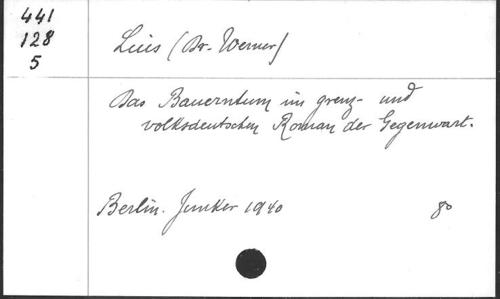 441
128
5
Lüis (Dr. Werner)
Das Bauerntum im grenz- und
volksdeutschen Roman der Gegenwart.
Berlin. Junker 1940 8o